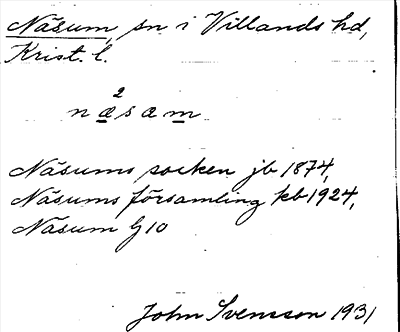 Näsum, sn i Villands hd,
Krist. l.
2
næsæm
Näsums socken jb 1874,
Näsums församling kb 1924,
Näsum G10
John Svensson 1931